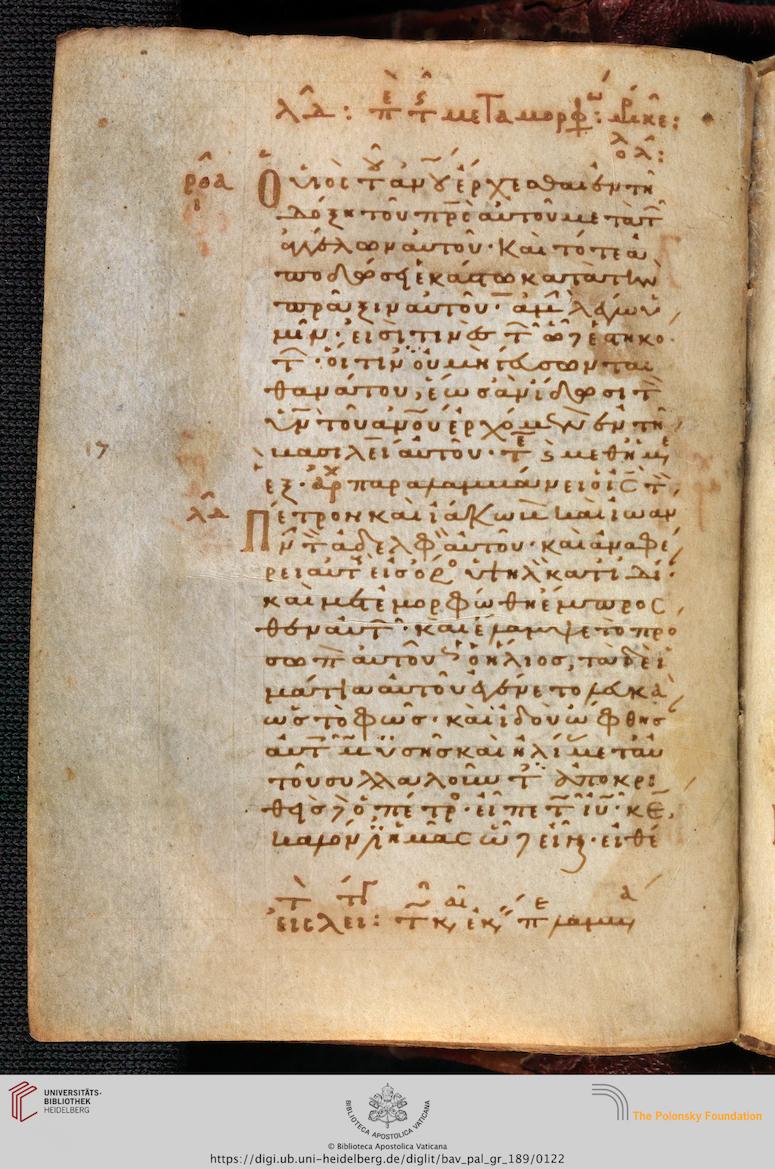 λδ : περὶ τ μεταμορφ : τ κε :
ολ :
ροα
η
Ὁ υἱὸς τ ἀνου ἔρχεσθαι ἐν τῆ
δόξη τοῦ πρς αὐτοῦ μετὰ τ
ἀγγέλων αὐτοῦ · καὶ τότε ἀ
ποδώσει ἑκάστω κατὰ τὴν
πρᾶξιν αὐτοῦ · ἀμ λέγω ὑ
μῖν · εἰσί τινες τ ὧδε ἑστηκό
τ · οἵτιν οὐ μὴ γεύσωνται
θανάτου, ἕως ἂν ἴδωσι τ
υν τοῦ ανου ἐρχόμενον ἐν τῆ
βασιλεί αὐτοῦ · τ ς μεθ ημ
ἐξ · παραλαμβάνει ὁ ις τ
λδ
Πέτρον καὶ ἰάκωβ καὶ ἰωάν
ν τ ἀδελφ αὐτοῦ · καὶ ἀναφέ
ρει αὐτ εἰς ὄρ ὑψηλ κατ ἰδί ·
καὶ μετεμορφώθη ἔμπροσ
θεν αὐτ · καὶ ἔλαμψε τὸ πρό
σωπ αὐτοῦ ὁ ἥλιος, τὰ δὲ ἱ
μάτια αὐτοῦ ἐγένετο λευκὰ
ὡς τὸ φῶς · καὶ ἰδοὺ ὤφθησ
αὐτ μωυσῆς καὶ ἠλί μετ αὐ
τοῦ συλλαλοῦν τ ἀποκρι
θεὶς δ ὁ πέτρ εἶπε τ ιυ · κε
καλόν ἡμᾶς ὧδε εἶν · εἰ θέ
17
UNIVERSITÄTS-
BIBLIOTHEK
HEIDELBERG
BIBLIOTECA APOSTOLICA VATICANA
The Polonsky Foundation
© Biblioteca Apostolica Vaticana
https://digi.ub.uni-heidelberg.de/diglit/bav_pal_gr_189/0122